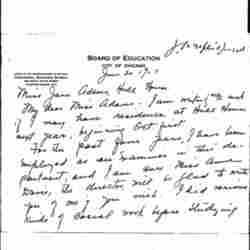 BOARD OF EDUCATION
CITY OF CHICAGO
June 20
Miss Jane Addams Hull House
My dear Miss Addams: I am writing to ask
if I may have residence at Hull House
next year, beginning Oct. first.
For the past four years, I have been
employed as an examiner in this de-
partment, and I am sure Miss Anne
Davis, the director, will be glad to write
you of me, if you wish. I did various
kinds of social work before studying